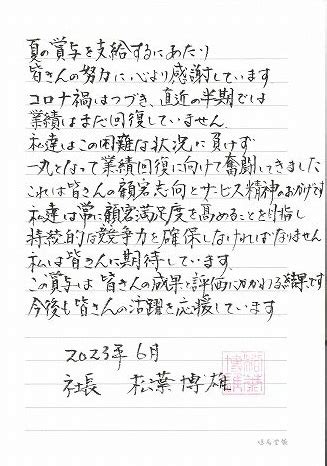 夏の賞与を支給するにあたり
皆さんの努力に心より感謝しています
コロナ禍はつづき、直近の半期では
業績はまだ回復していません
私達はこの困難な状況に負けず
一丸となって業績回復に向けて奮闘してきました
これは皆さんの顧客志向とサービス精神のおかげです
私達は常に顧客満足度を高めることを目指し
持続的な競争力を確保しなければなりません
私は皆さんに期待しています
この賞与は皆さんの成果と評価にかかわる結果です
今後も皆さんの活躍を応援しています
2023年6月
社長 松葉博雄